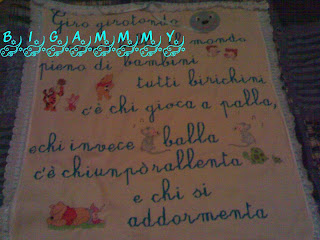 Giro girotondo
B.I.G.A.M.M.M.Y.
mondo
pieno di bambini
tutti birichini
c'è chi gioca a palla,
e chi invece balla
c'è chi un pò rallenta
e chi si
addormenta